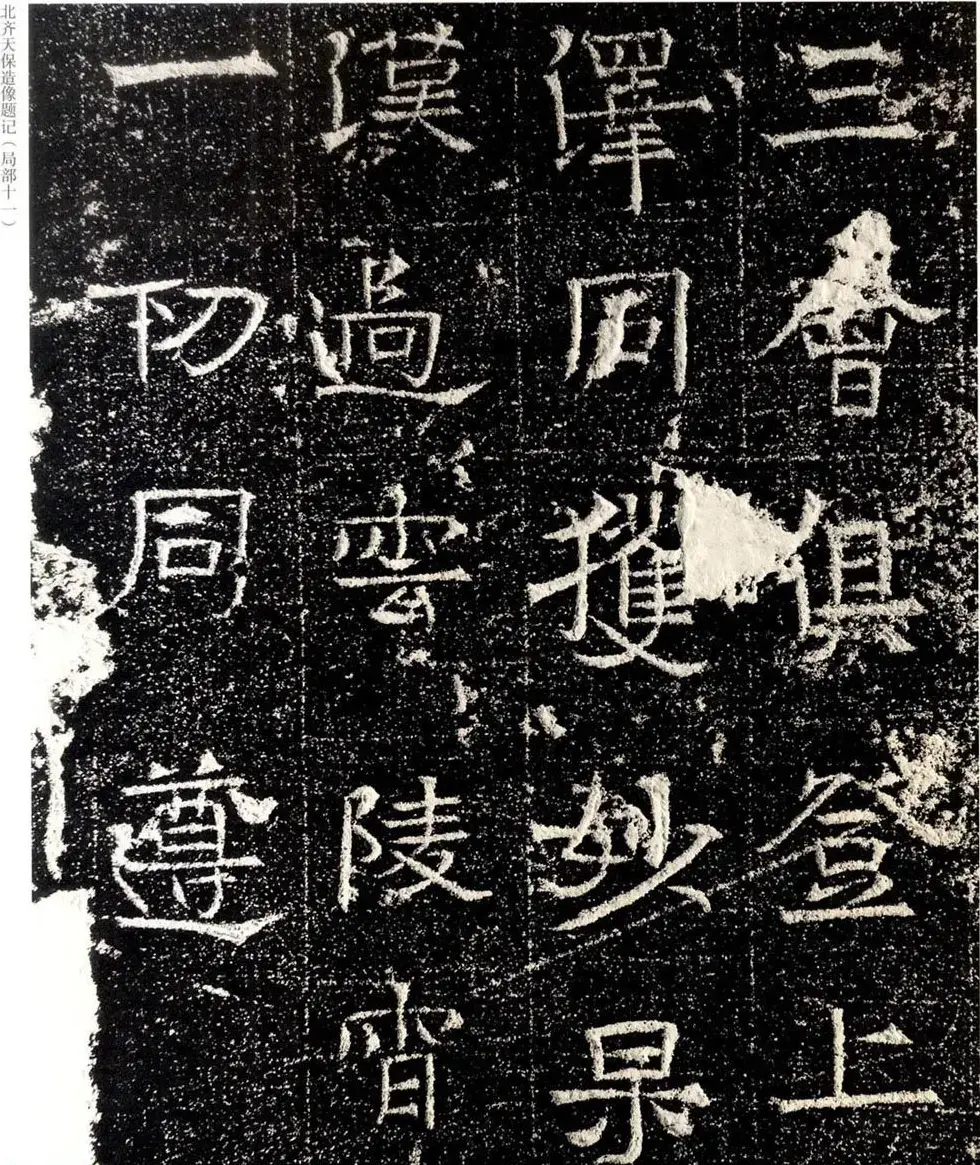 三會俱登上
澤同獲妙果
漢過雲陵霄
一切同遵
北齐天保造像题记（局部十一）